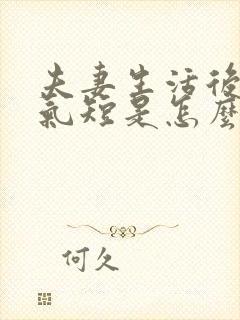 夫妻生活後
氣短是怎麼
何久